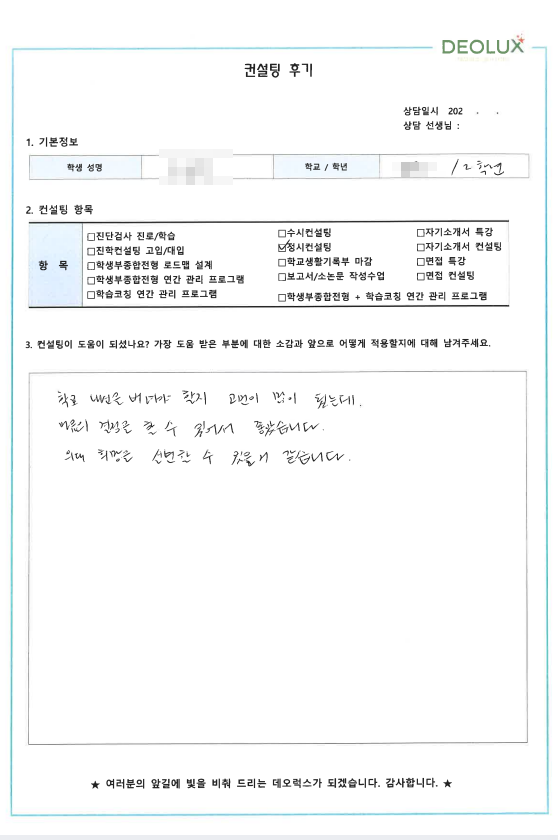 DEOLUX
컨설팅 후기
상담일시 202 . .
상담 선생님 :
1. 기본정보
학생 성명 학교 / 학년 / 2학년
2. 컨설팅 항목
항 목
□진단검사 진로/학습 □수시컨설팅 □자기소개서 특강
□진학컨설팅 고입/대입 ☑정시컨설팅 □자기소개서 컨설팅
□학생부종합전형 로드맵 설계 □학교생활기록부 마감 □면접 특강
□학생부종합전형 연간 관리 프로그램 □보고서/소논문 작성수업 □면접 컨설팅
□학습코칭 연간 관리 프로그램 □학생부종합전형 + 학습코칭 연간 관리 프로그램
3. 컨설팅이 도움이 되셨나요? 가장 도움 받은 부분에 대한 소감과 앞으로 어떻게 적용할지에 대해 남겨주세요.
학교 내신을 버려야 할지 고민이 많이 됬는데.
마음의 결정을 할 수 있어서 좋았습니다.
의대 희망은 수 있을거 같습니다.
★ 여러분의 앞길에 빛을 비춰 드리는 데오럭스가 되겠습니다. 감사합니다. ★